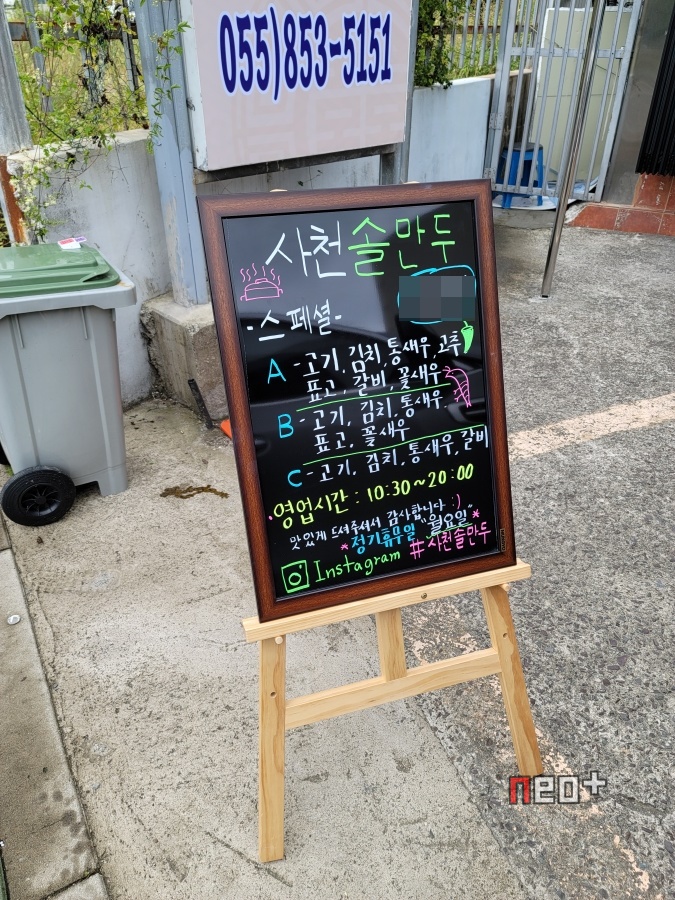 055)853-5151
사천솔만두
-스페셜-
A - 고기, 김치, 통새우, 고추
표고, 갈비, 꽃새우
B - 고기, 김치, 통새우.
표고, 꽃새우
C - 고기, 김치, 통새우, 갈비
영업시간 : 10:30~20:00
맛있게 드셔주셔서 감사합니다 :)
*정기휴무일 "월요일"*
Instagram #사천솔만두
neo+